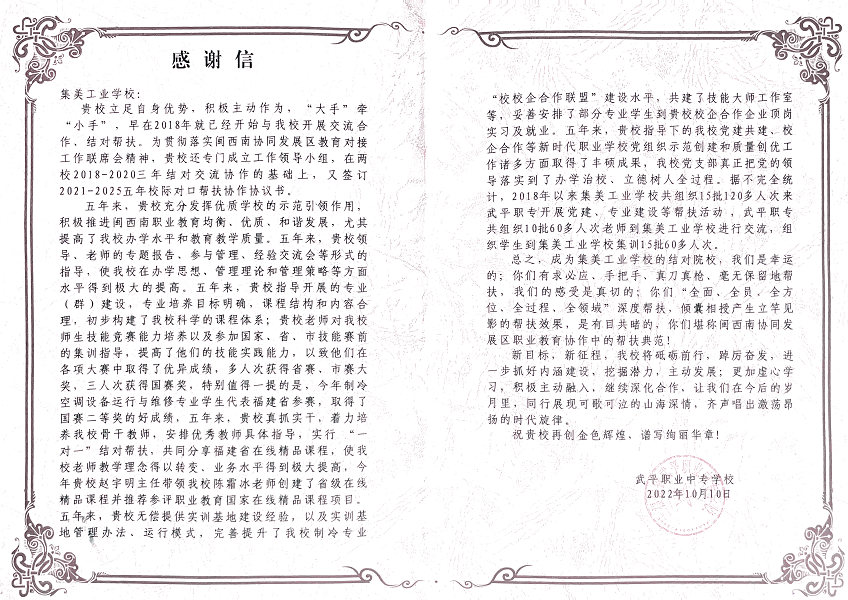 感谢信
集美工业学校:
贵校立足自身优势，积极主动作为，“大手”牵
“小手”，早在2018年就已经开始与我校开展交流合
作、结对帮扶。为贯彻落实闽西南协同发展区教育对接
工作联席会精神，贵校还专门成立工作领导小组，在两
校2018-2020三年结对交流协作的基础上，又签订
2021-2025五年校际对口帮扶协作协议书。
五年来，贵校充分发挥优质学校的示范引领作用，
积极推进闽西南职业教育均衡、优质、和谐发展，尤其
提高了我校办学水平和教育教学质量。五年来，贵校领
导、老师的专题报告、参与管理、经验交流会等形式的
指导，使我校在办学思想、管理理论和管理策略等方面
水平得到极大的提高。五年来，贵校指导开展的专业
（群）建设，专业培养目标明确，课程结构和内容合
理，初步构建了我校科学的课程体系；贵校老师对我校
师生技能竞赛能力培养以及参加国家、省、市技能赛前
的集训指导，提高了他们的技能实践能力，以致他们在
各项大赛中取得了优异成绩，多人次获得省赛、市赛大
奖，三人次获得国赛奖，特别值得一提的是，今年制冷
空调设备运行与维修专业学生代表福建省参赛，取得了
国赛二等奖的好成绩，五年来，贵校真抓实干，着力培
养我校骨干教师，安排优秀教师具体指导，实行“一
对一”结对帮扶，共同分享福建省在线精品课程，使我
校老师教学理念得以转变、业务水平得到极大提高，今
年贵校赵宇明主任带领我校陈霜冰老师创建了省级在线
精品课程并推荐参评职业教育国家在线精品课程项目。
五年来，贵校无偿提供实训基地建设经验，以及实训基
地管理办法、运行模式，完善提升了我校制冷专业
“校校企合作联盟”建设水平，共建了技能大师工作室
等，妥善安排了部分专业学生到贵校校企合作企业顶岗
实习及就业。五年来，贵校指导下的我校党建共建、校
企合作等新时代职业学校党组织示范创建和质量创优工
作诸多方面取得了丰硕成果，我校党支部真正把党的领
导落实到了办学治校、立德树人全过程。据不完全统
计，2018年以来集美工业学校共组织15批120多人次来
武平职专开展党建、专业建设等帮扶活动，武平职专
共组织10批60多人次老师到集美工业学校进行交流，组
织学生到集美工业学校集训15批60多人次。
总之，成为集美工业学校的结对院校，我们是幸运
的；你们有求必应、手把手、真刀真枪、毫无保留地帮
扶，我们的感受是真切的；你们“全面、全员、全方
位、全过程、全领域”深度帮扶，倾囊相授产生立竿见
影的帮扶效果，是有目共睹的，你们堪称闽西南协同发
展区职业教育协作中的帮扶典范！
新目标，新征程，我校将砥砺前行，踔厉奋发，进
一步抓好内涵建设，挖掘潜力，主动发展；更加虚心学
习，积极主动融入，继续深化合作，让我们在今后的岁
月里，同行展现可歌可泣的山海深情，齐声唱出激荡昂
扬的时代旋律。
祝贵校再创金色辉煌、谱写绚丽华章！
武平职业中专学校
2022年10月10日